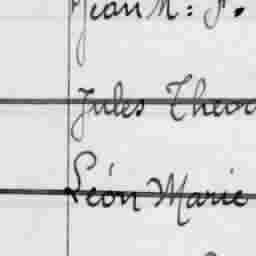 Jean M. J.
Jules Theod
Léon Marie